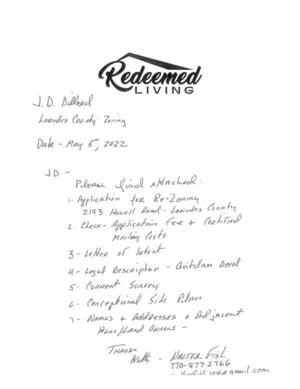 Redeemed
LIVING
J.D. Dillard
Lowndes County Zoning
Date - May 5, 2022
JD -
Please find attached:
1- Application for Re-Zoning
2193 Howell Road - Lowndes County
2- Check - Application Fee & Certified
Mailing Costs
3- Letter of Intent
4- Legal Description - Quitclaim Deed
5- Current Survey
6- Conceptional Site Plan
7- Names & Addresses & Adjacent
Land Owners -
Thanks
Walt - Walter Fish
770-877-2766
@gmail.com